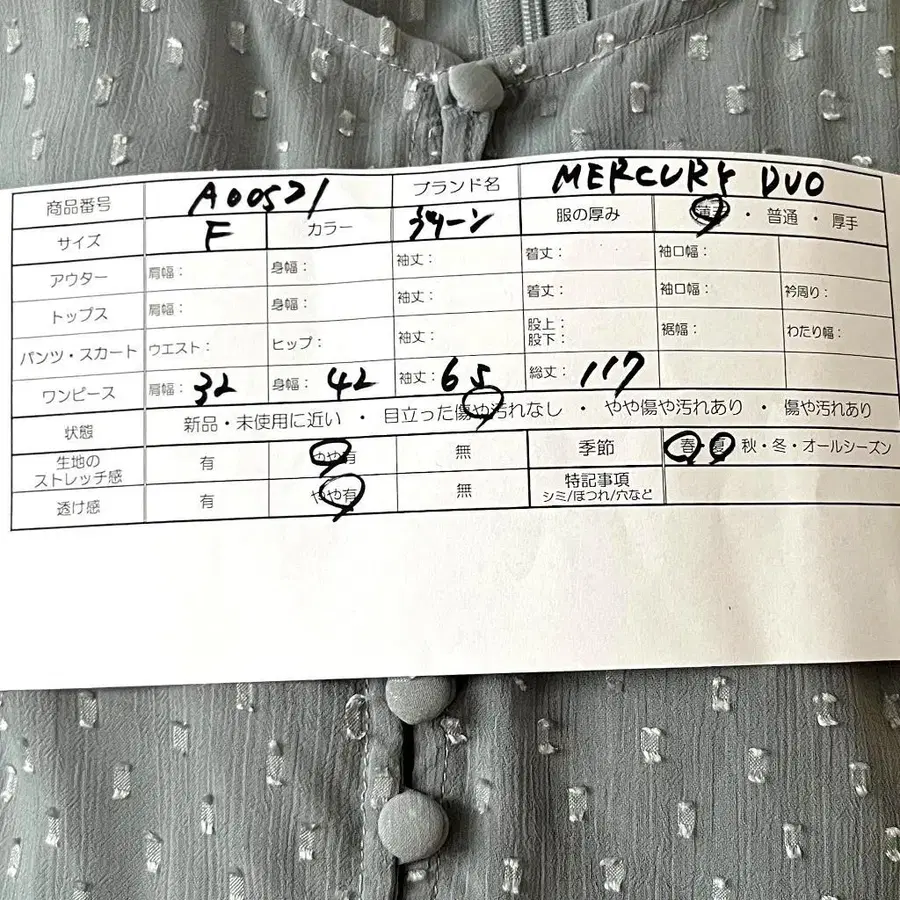 商品番号 A00521 ブランド名 MERCURY DUO
サイズ F カラー グリーン 服の厚み 薄手 ・ 普通 ・ 厚手
アウター 肩幅： 身幅： 袖丈： 着丈： 袖口幅：
トップス 肩幅： 身幅： 袖丈： 着丈： 袖口幅： 衿周り：
パンツ・スカート ウエスト： ヒップ： 袖丈： 股上： 股下： 裾幅： わたり幅：
ワンピース 肩幅： 32 身幅： 42 袖丈： 65 総丈： 117
状態 新品・未使用に近い ・ 目立った傷や汚れなし ・ やや傷や汚れあり ・ 傷や汚れあり
生地のストレッチ感 有 やや有 無 季節 春・夏・秋・冬・オールシーズン
透け感 有 やや有 無 特記事項 シミ/ほつれ/穴など